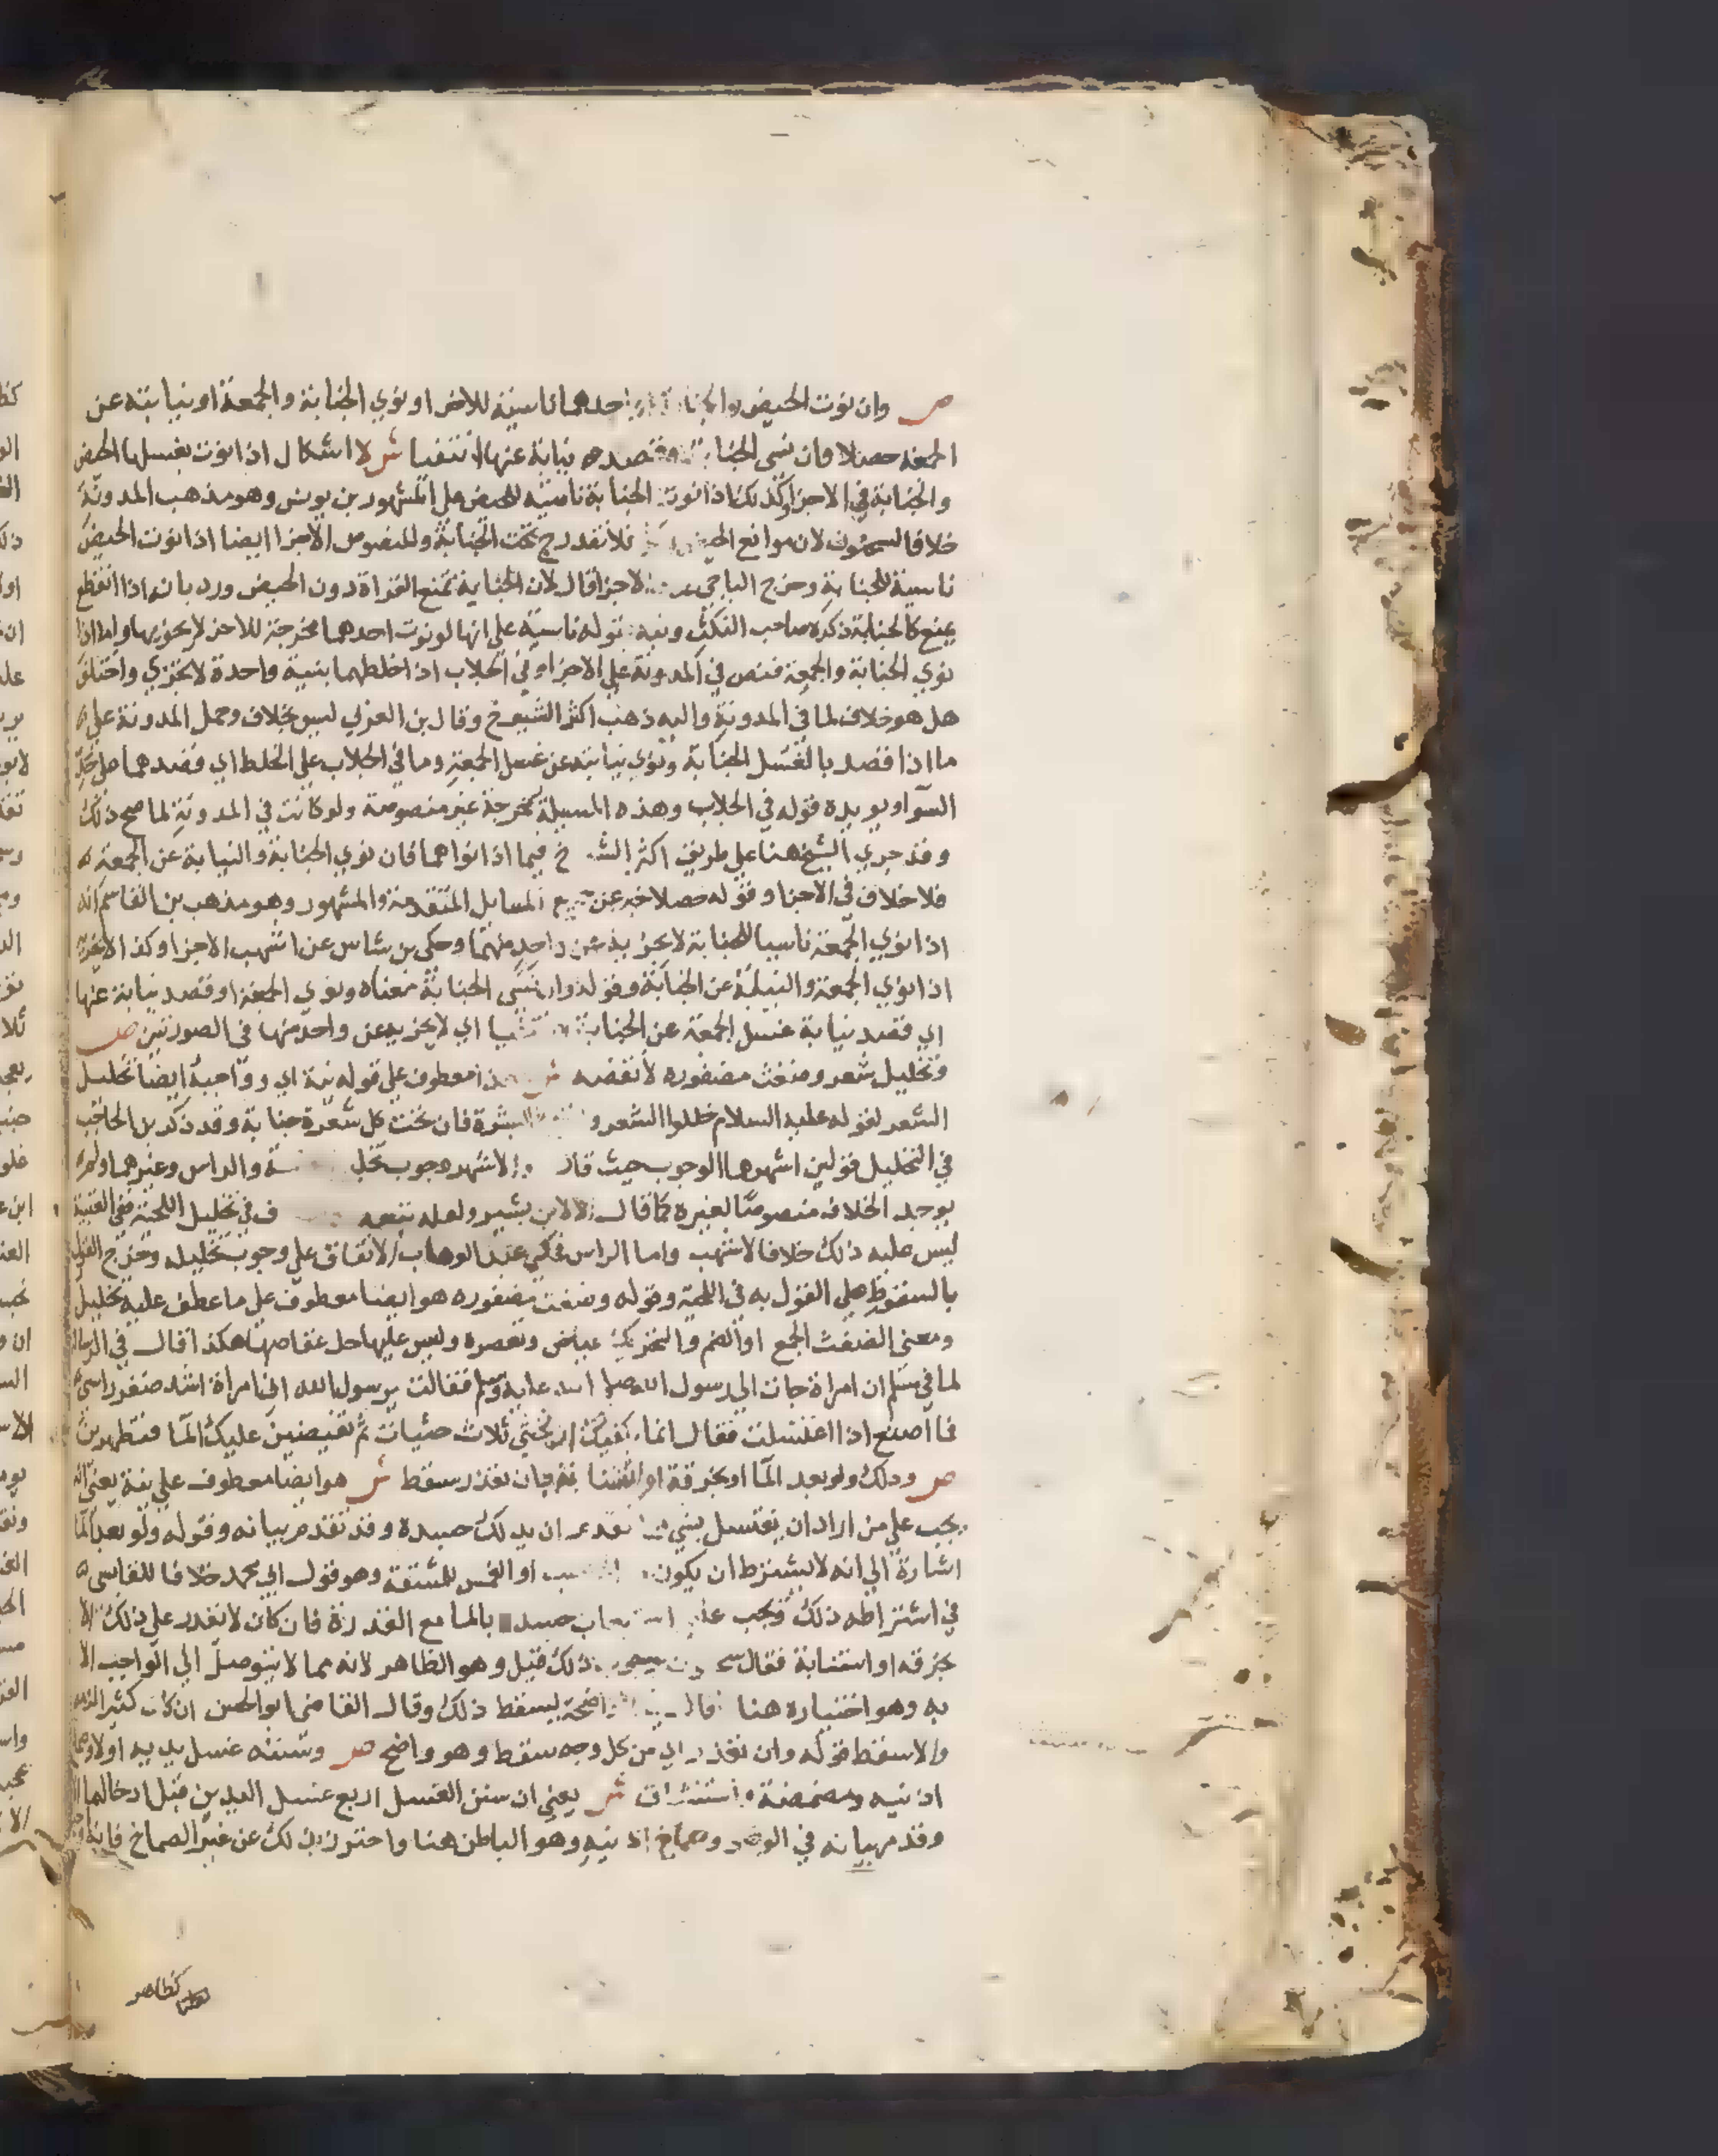 ص وان نوت الحيض والجنابة او احدهما ناسية للاخر او نوي الجنابة والجمعة او نيابته عن
الجمعة حصلا وان نسى الجنابة او قصد نيابة عنها انتفيا ش لا اشكال اذا نوت بغسلها الحيض
والجنابة في الاجزا وكذلك اذا نوت الجنابة ناسية للحيض على المشهور بن يونس وهو مذهب المدونة
خلافا لسحنون لان موانع الحيض فلا تندرج تحت الجنابة والمنصوص الاجزا ايضا اذا نوت الحيض
ناسية للجنابة وخرج الباجي الاجزا قال لان الجنابة تمنع القراة دون الحيض ورد بانه اذا انقطع
يمنع كالجنابة ذكره صاحب النكت ونبه بقوله ناسية على انها لو نوت احدهما مخرجة للاخر لم يجزيها واما اذا
نوي الجنابة والجمعة فنص في المدونة على الاجزا وفي الجلاب اذا خلطهما بنية واحدة لا تجزي واختلف
هل هو خلاف لما في المدونة واليه ذهب اكثر الشيوخ وقال بن العربي ليس بخلاف وحمل المدونة على ه
ما اذا قصد بالغسل الجنابة ونوي نيابته عن غسل الجمعة وما في الجلاب على الخلط اي قصدهما على حد
السوا ويويده قوله في الجلاب وهذه المسيلة مخرجة غير منصوصة ولو كانت في المدونة لما صح ذلك
وقد جري الشيخ هنا على طريق اكثر الشيوخ فيما اذا نواهما فان نوي الجنابة والنيابة عن الجمعة ه
فلا خلاف في الاجزا وقوله حصلا خبر عن جميع المسايل المتقدمة والمشهور وهو مذهب بن القاسم انه
اذا نوي الجمعة ناسيا للجنابة لا يجزيه عن واحد منهما وحكى بن شاس عن اشهب الاجزا وكذا لا يجزيه
اذا نوي الجمعة والنيابة عن الجنابة وقوله وان نسى الجنابة معناه ونوي الجمعة او قصد نيابة عنها
اي قصد نيابة غسل الجمعة عن الجنابة انتفيا اي لا يجزيه عن واحد منها في الصورتين ص
وتخليل شعر وضغث مضفوره لا نقضه ش هذا معطوف على قوله نية اي وواجبه ايضا تخليل
الشعر لقوله عليه السلام خللوا الشعر وانقوا البشرة فان تحت كل شعرة جنابة وقد ذكر بن الحاجب
في التخليل قولين اشهرهما الوجوب حيث قال والاشهر وجوب تخليل والراس وغيرهما ولم
يوجد الخلاف منصوصا لغيره كما قال الا لابن بشير ولعله تبعه ف في تخليل اللحية ففي العتبية
ليس عليه ذلك خلافا لاشهب واما الراس فحكى عبد الوهاب الاتفاق على وجوب تخليله وخرج القول
بالسقوط على القول به في اللحية وقوله وضغث مضفوره هو ايضا معطوف على ما عطف عليه تخليل
ومعنى الضغث الجمع او الضم والتحريك عياض وتعصره وليس عليها حل عقاصها هكذا قال في الرسالة
لما في مسلم ان امراة جات الى رسول الله صلى الله عليه وسلم فقالت يرسول الله اني امراة اشد ضفر راسي
فما اصنع اذا اغتسلت فقال انما يكفيك ان تحثي ثلاث حثيات ثم تفيضين عليك الما فتطهرين
ص ودلك ولو بعد الما او بخرقة او استنابة فان تعذر سقط ش هو ايضا معطوف على نية يعني انه
يجب على من اراد ان يغتسل بشي مما تقدم ان يدلك جسده وقد تقدم بيانه وقوله ولو بعد الما
اشارة الى انه لا يشترط ان يكون الصب او الغمس للمشقة وهو قول ابي محمد خلافا للقابسي ه
في اشتراطه ذلك ويجب عليه استيعاب جسده بالما مع القدرة فان كان لا يقدر على ذلك الا
بخرقه او استنابة فقال سحنون ذلك قيل وهو الظاهر لانه مما لا يتوصل الى الواجب الا
به وهو اختياره هنا وقال الواضحة يسقط ذلك وقال القاضي ابو الحسن ان كان كثير الزمه
والا سقط قوله وان تعذر اي من كل وجه سقط وهو واضح ص وسننه غسل يديه اولا وصماخ
اذنيه ومضمضة واستنشاق ش يعني ان سنن الغسل اربع غسل اليدين قبل ادخالهما
وقد مر بيانه في الوضوء وصماخ اذنيه وهو الباطن هنا واحترز بذلك عن غير الصماخ فانه
كظاهر